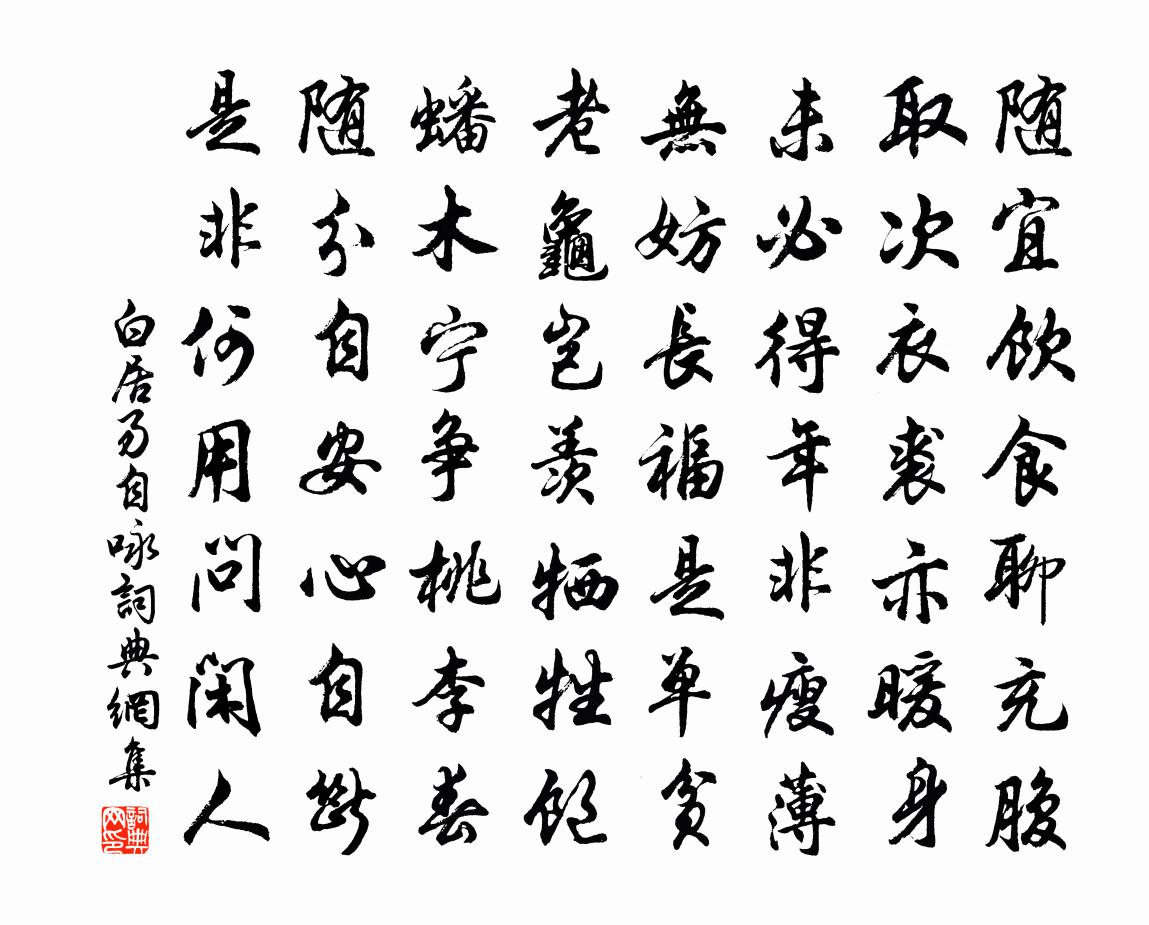 随宜飲食聊充腹
取次衣裘亦暖身
未必得年非瘦薄
無妨長福是单貧
老龜豈羨牺牲飽
蟠木宁争桃李春
随分自安心自斷
是非何用問闲人
白居易自咏詞典網集
詞典网印